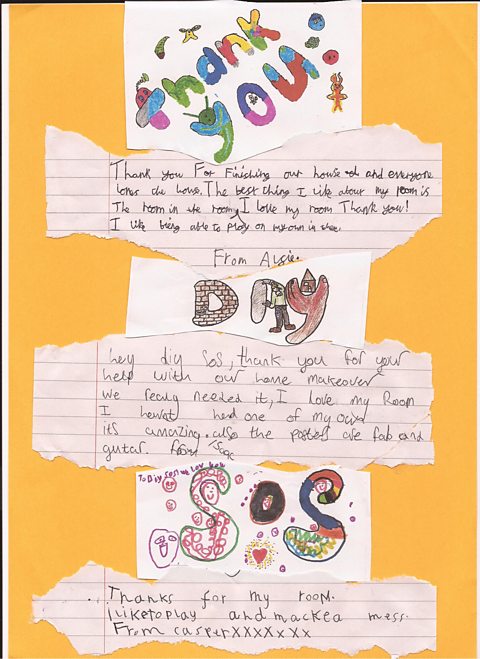 Thank
you
Thank you For Finishing our house and everyone
loves the house. The best thing I like about my room is
The room in the room, I love my room Thank you!
I like being able to play on my own in
From
DIY
hey diy SOS, thank you for your
help with our home makeover
we realy needed it, I love my Room
I one of my
its amazing. also the posters are fab and
gutar. from
To Diy SOS! we Lov
SOS
Thanks for my room.
I liketoplay and mackea mess.
From casperXXXXxXx